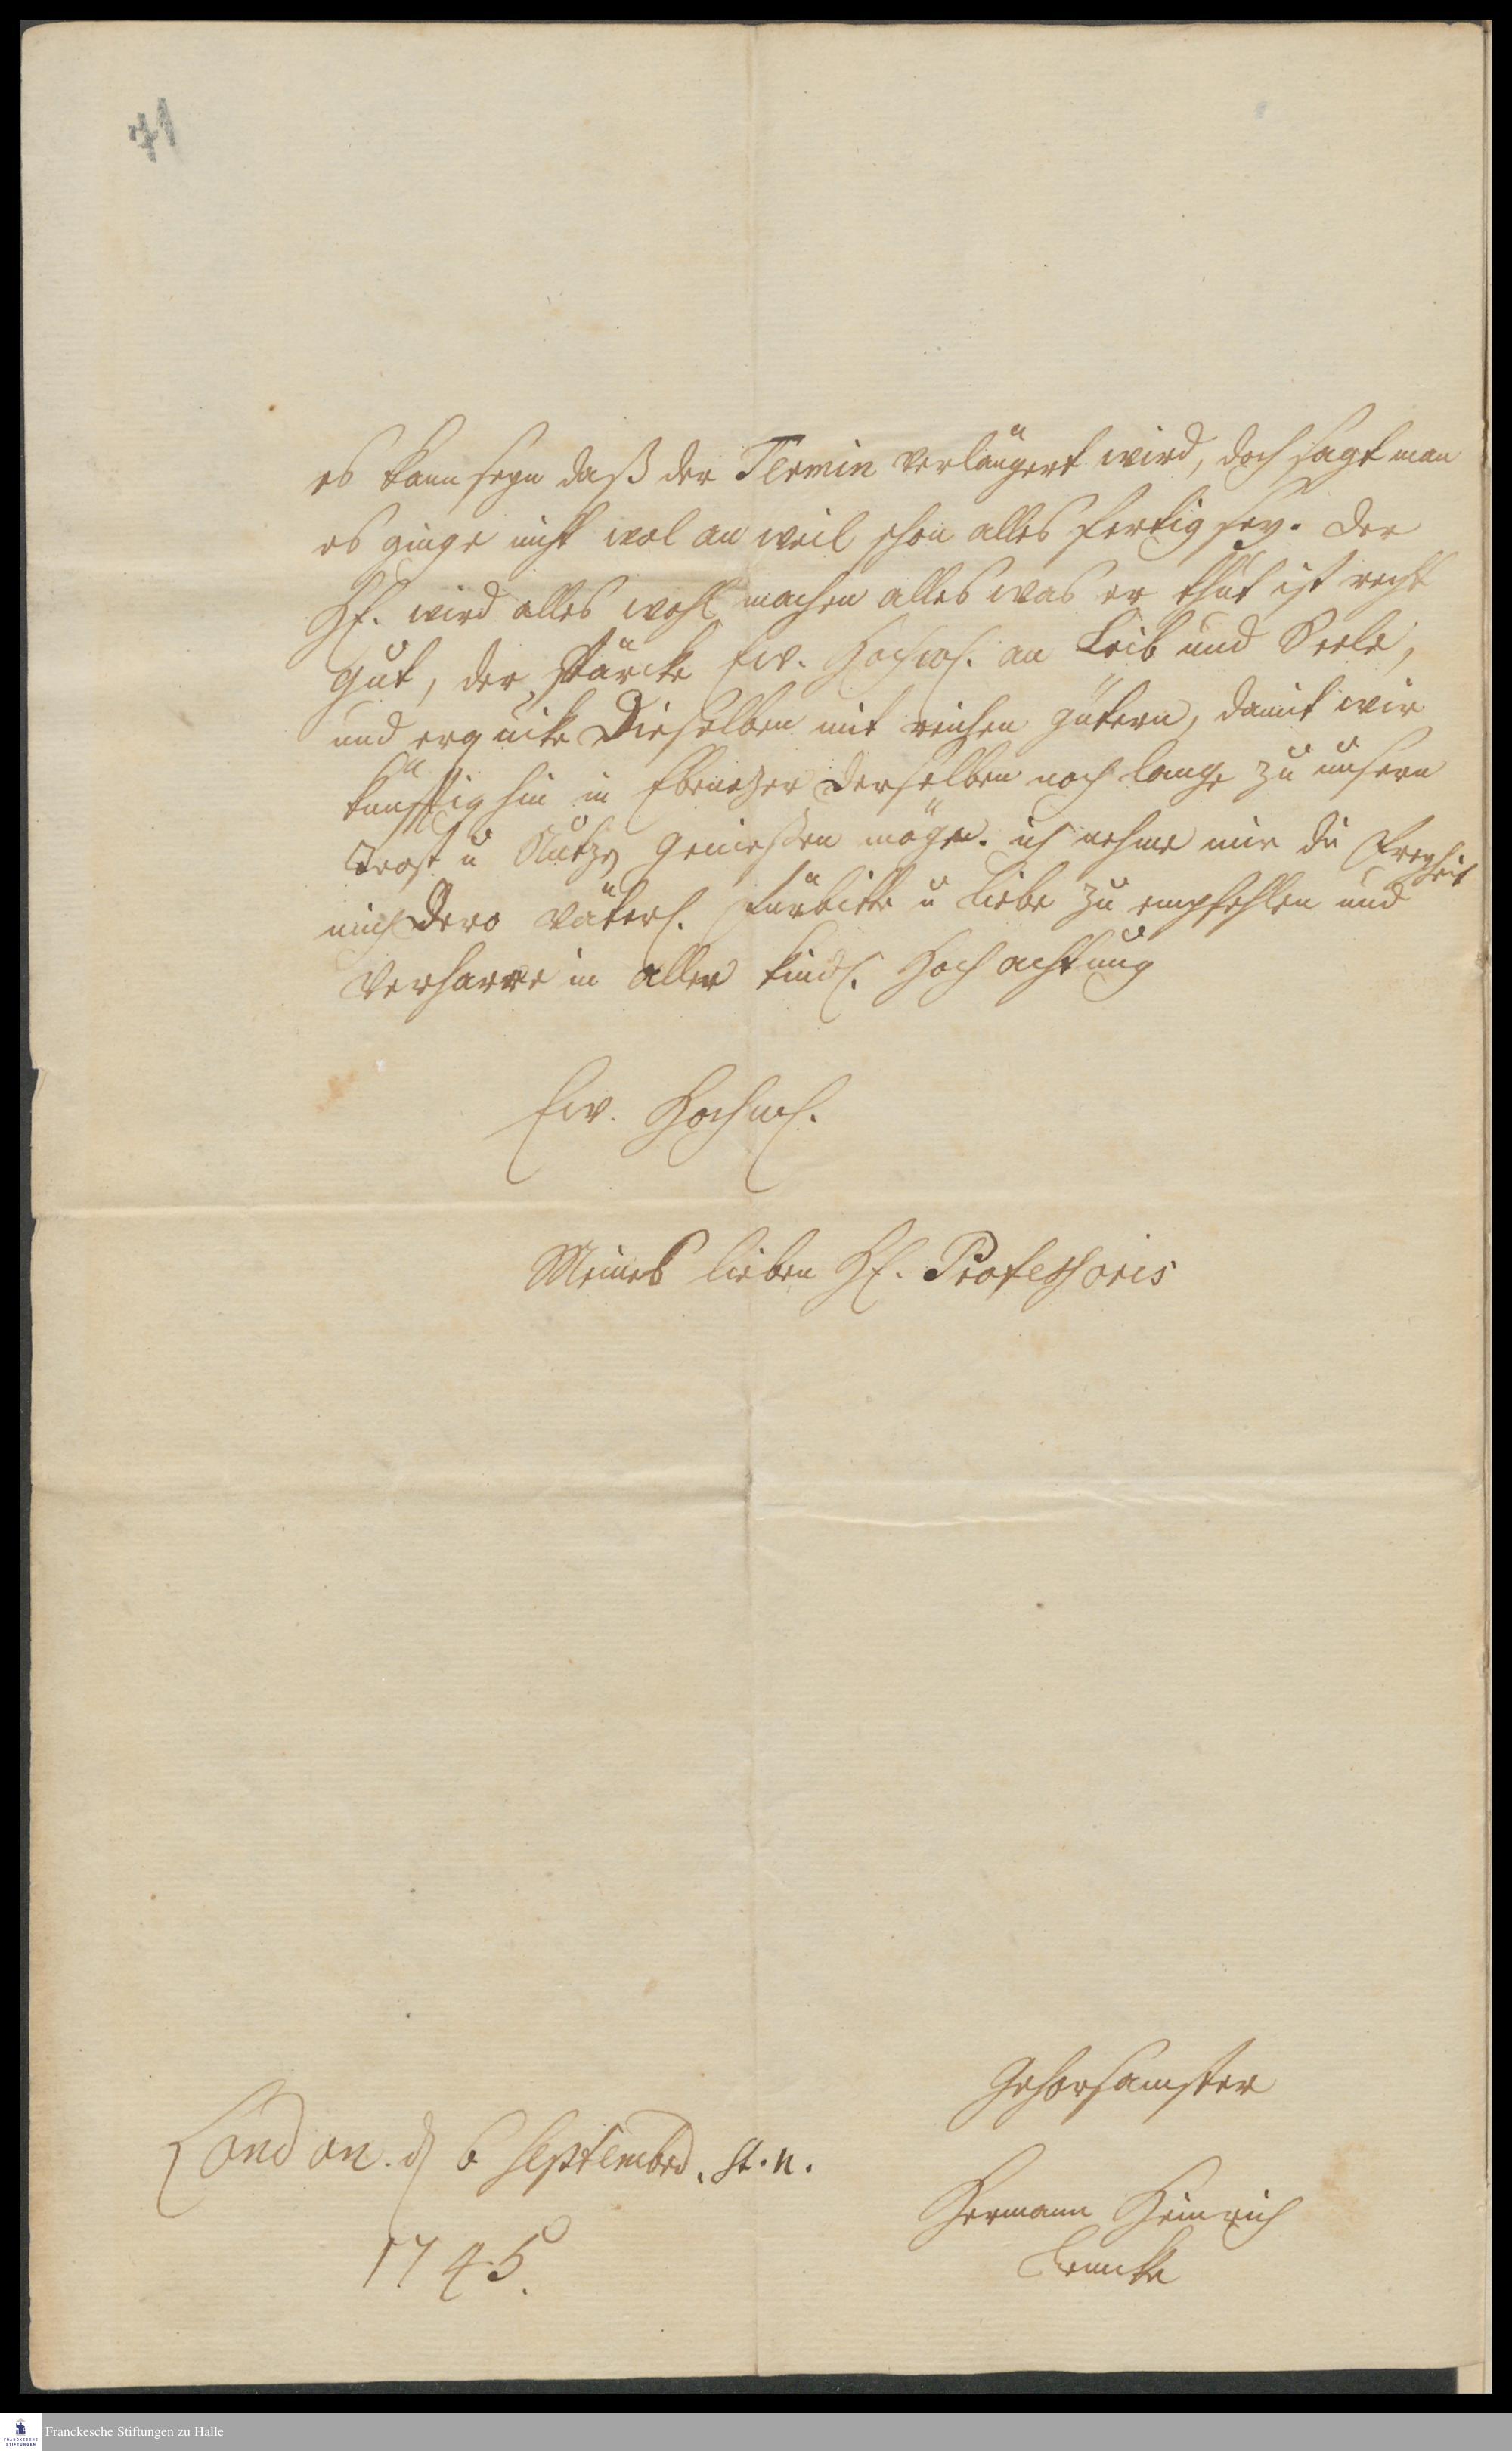 71
es kann seyn daß der Termin verlängert wird, doch sagt man
es ginge nicht wol an weil schon alles fertig sey. Der
H. wird alles wohl machen alles was er thut ist recht
gut, der stärcke Ew. Hochw. an Leib und Seele,
und erquicke Dieselben mit reichen gütern, damit wir
künfftighin in Ebenezer Derselben noch lange zu unsern
Trost u Nutzen geniessen mögen. ich nehme mir die Freyheit
mich Dero väterl. Fürbitte u Liebe zu empfehlen und
verharre in aller kindl. Hochachtung
Ew. Hochw.
Meines lieben H. Professoris
gehorsamster
London. d 6 Septembr. st. n.
1745.
Hermann Heinrich
Lemcke
FRANCKESCHE STIFTUNGEN
Franckesche Stiftungen zu Halle